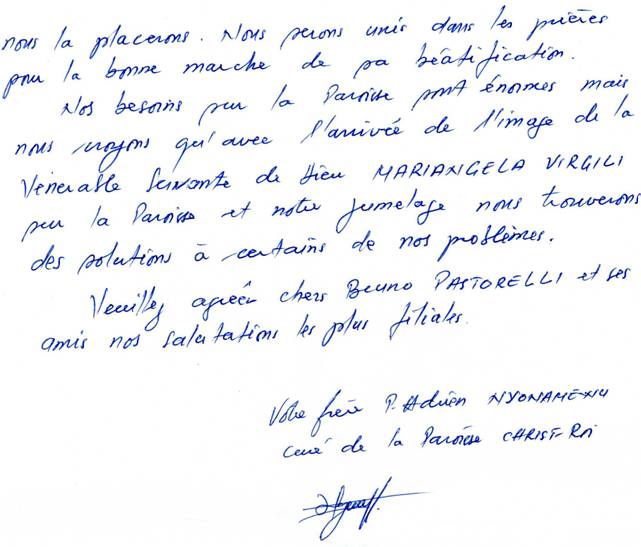 nous la placerons. Nous serons unis dans les prières
pour la bonne marche de sa béatification.
Nos besoins sur la Paroisse sont énormes mais
nous croyons qu'avec l'arrivée de l'image de la
Vénérable Servante de Dieu MARIANGELA VIRGILI
sur la Paroisse et notre jumelage nous trouverons
des solutions à certains de nos problèmes.
Veuillez agréer chers Bruno PASTORELLI et ses
amis nos salutations les plus filiales.
Votre frère P. Adrien
curé de la Paroisse CHRIST-Roi